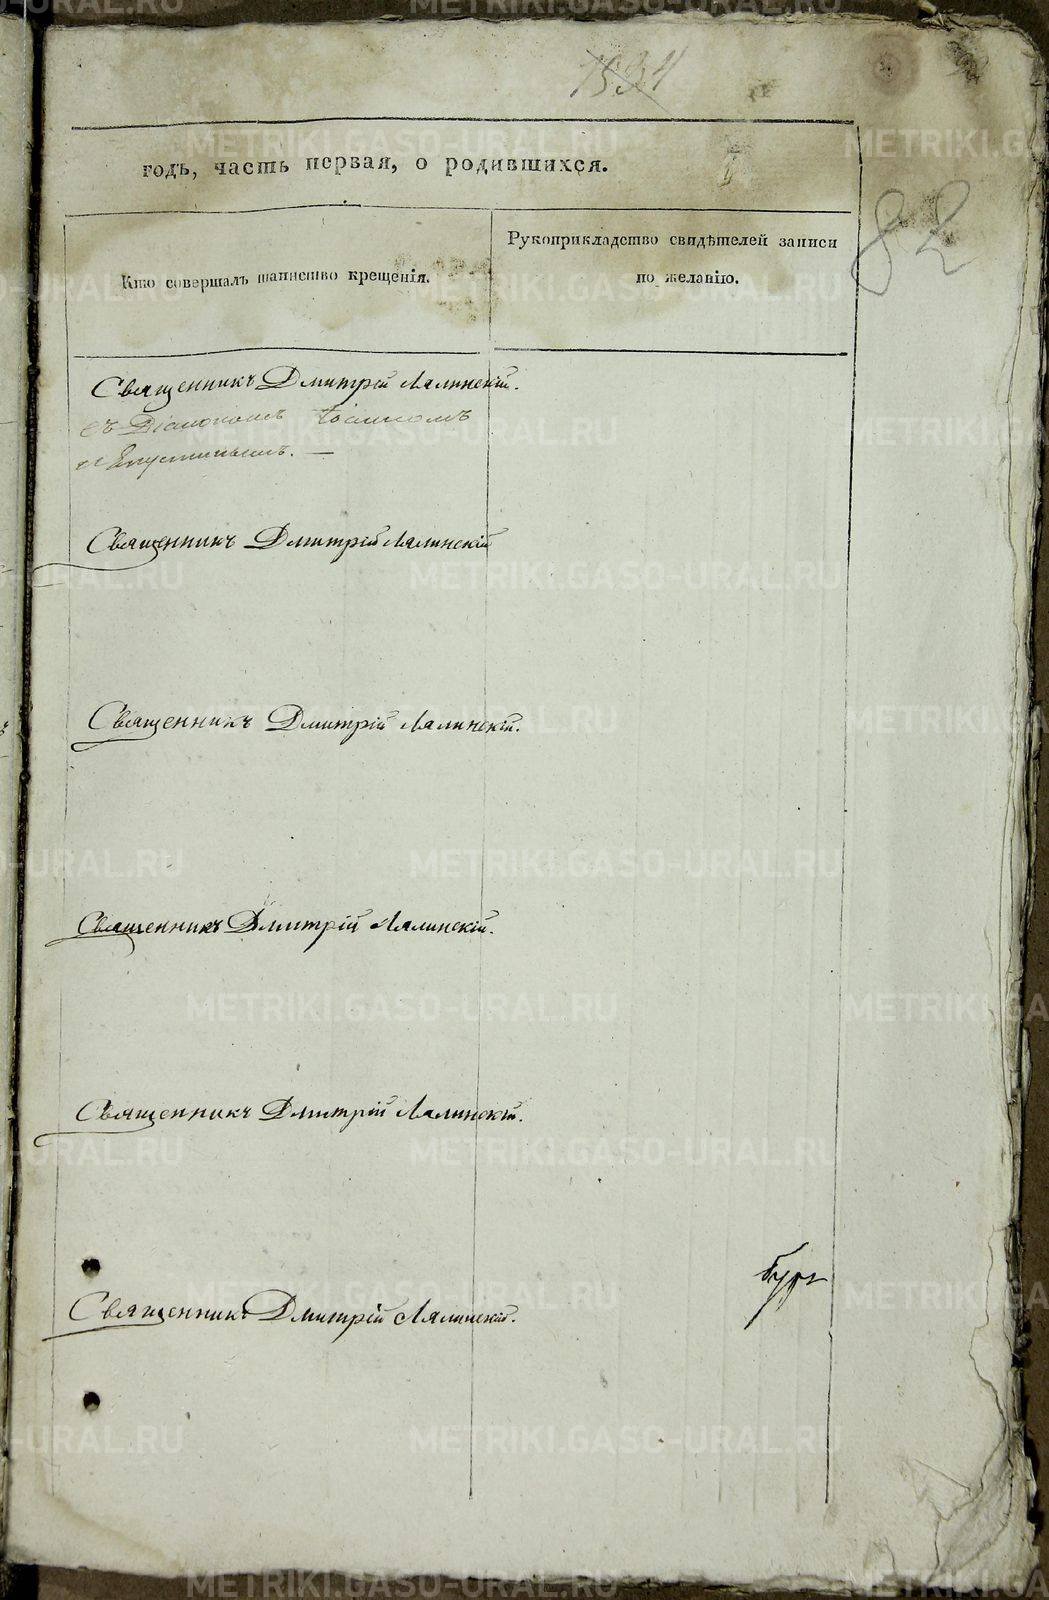 1534
годъ, часть первая, о родившихся.
82
Кто совершалъ таинство крещенія.
Рукоприкладство свидѣтелей записи
по желанію.
Священникъ Дмитрій Лялинскій.
съ Діакономъ
и
Священникъ Дмитрій Лялинскій
Священникъ Дмитрій Лялинскій.
Священникъ Дмитрій Лялинскій.
Священникъ Дмитрій Лялинскій.
Священникъ Дмитрій Лялинскій.
METRIKI.GASO-URAL.RU